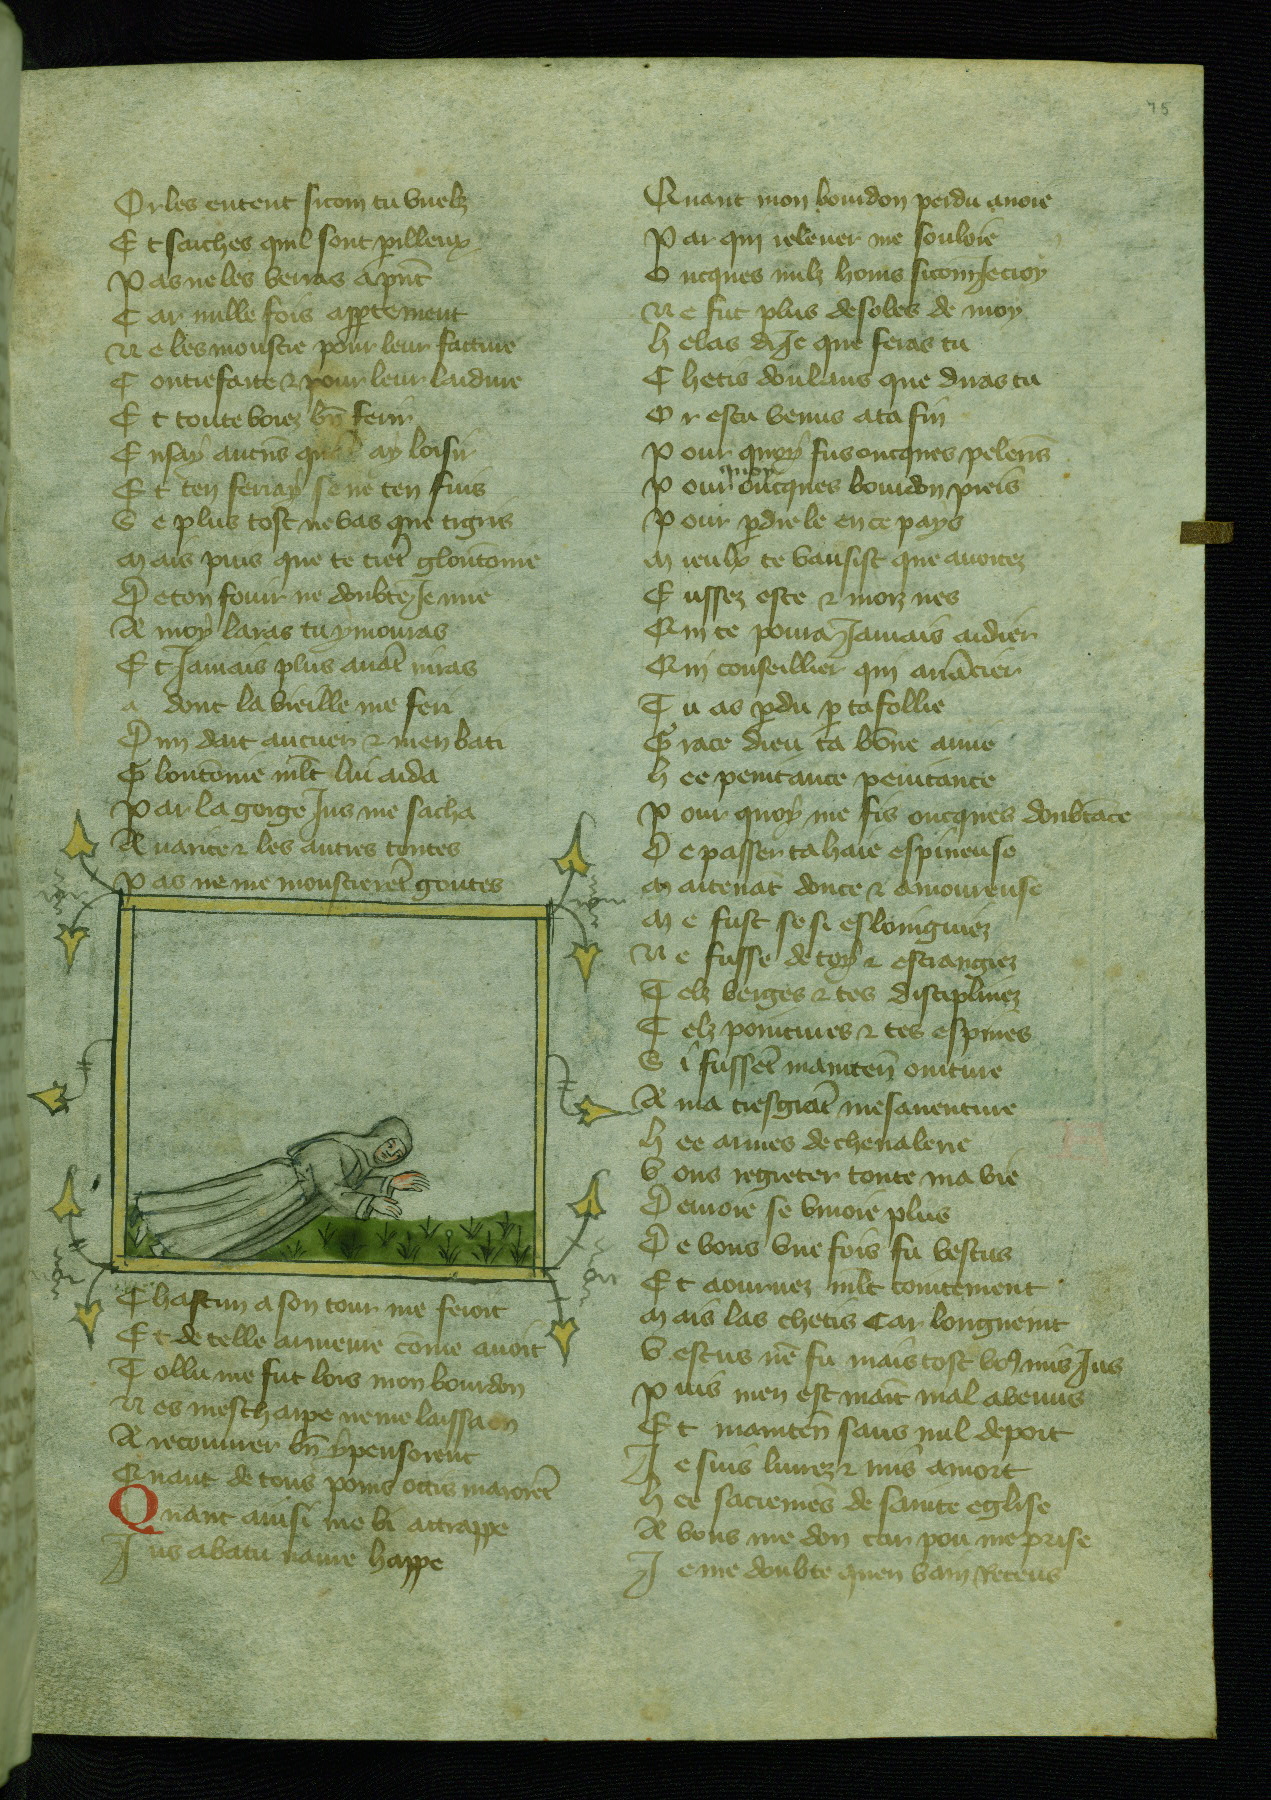 75
Or les entent sicom tu vuelz
Et saches quil sont perilleux
Pas ne les verras a pñt
Car nulle fois appertement
Ne les monstre pour leur faiture
Contrefaite & pour leur laidure
Et toute voiez bñ ferir
En say aucũs ay loisir
Et ten ferray se ne ten fuis
Se plus tost ne vas que tigris
Mais puis que te tiet gloutõnie
De ton fouir ne doubte Je mie
A moy laras tu y mourras
Et Jamais plus auãt niras
a donc la vieille me feri
Dun dart au cuer & men bati
Gloutõnie mlt lui aida
Par la gorge Jus me sacha
Auarice & les autres toutes
Pas ne me monstrerẽt goutes
Chascun a son tour me feroit
Et de telle armeure cõme auoit
Tollu me fut lors mon bourdon
Nes mescharpe ne me laissa on
A recourrer bñ y penserent
Quant de tous poins occis mauroiẽt
Quant ainsi me vi attrappe
Jus abatu naure happe
Quant mon bourdon perdu auoie
Par qui releuer me souloie
Oncques nulz homs sicom Je croy
Ne fut plus desoles de moy
Helas dis Je que feras tu
Chetis doulans que diras tu
Or es tu venus a ta fin
Pour quoy fus oncques pelerĩs
Pour quoy oncques bourdon preis
Pour pdre le en ce pays
Mieulx te vausist que auortez
Eussez este & mors nes
Qui te pourra Jamais aidier
Qui conseillier qui auãcier
Tu as pdu p ta follie
Grace dieu ta bõne amie
Hee penitance penitance
Pour quoy me fis oncques doubtãce
De passer ta haie espineuse
Maitenãt douce & amoureuse
Me fust se si esloingniez
Ne fusse de toy & estrangiez
Telz verges & tes disciplinez
Telz pointures & tes espines
Si fussẽt mainteñ ointure
A ma tresgrãt mesauenture
Hee armes de cheualerie
Vous regreter toute ma vie
Deuroie se viuoie plus
De vous vne fois fu vestus
Et aournez mlt cointement
Mais las chetis Car longuemt
Vestus nẽ fu mais tost vos mis Jus
Puis men est mait mal avenus
Et mainteñ sans nul deport
Je suis liurez & mis a mort
Hee sacremẽs de sainte eglise
A vous me don car pou me prise
Je me doubte quen vain Receus